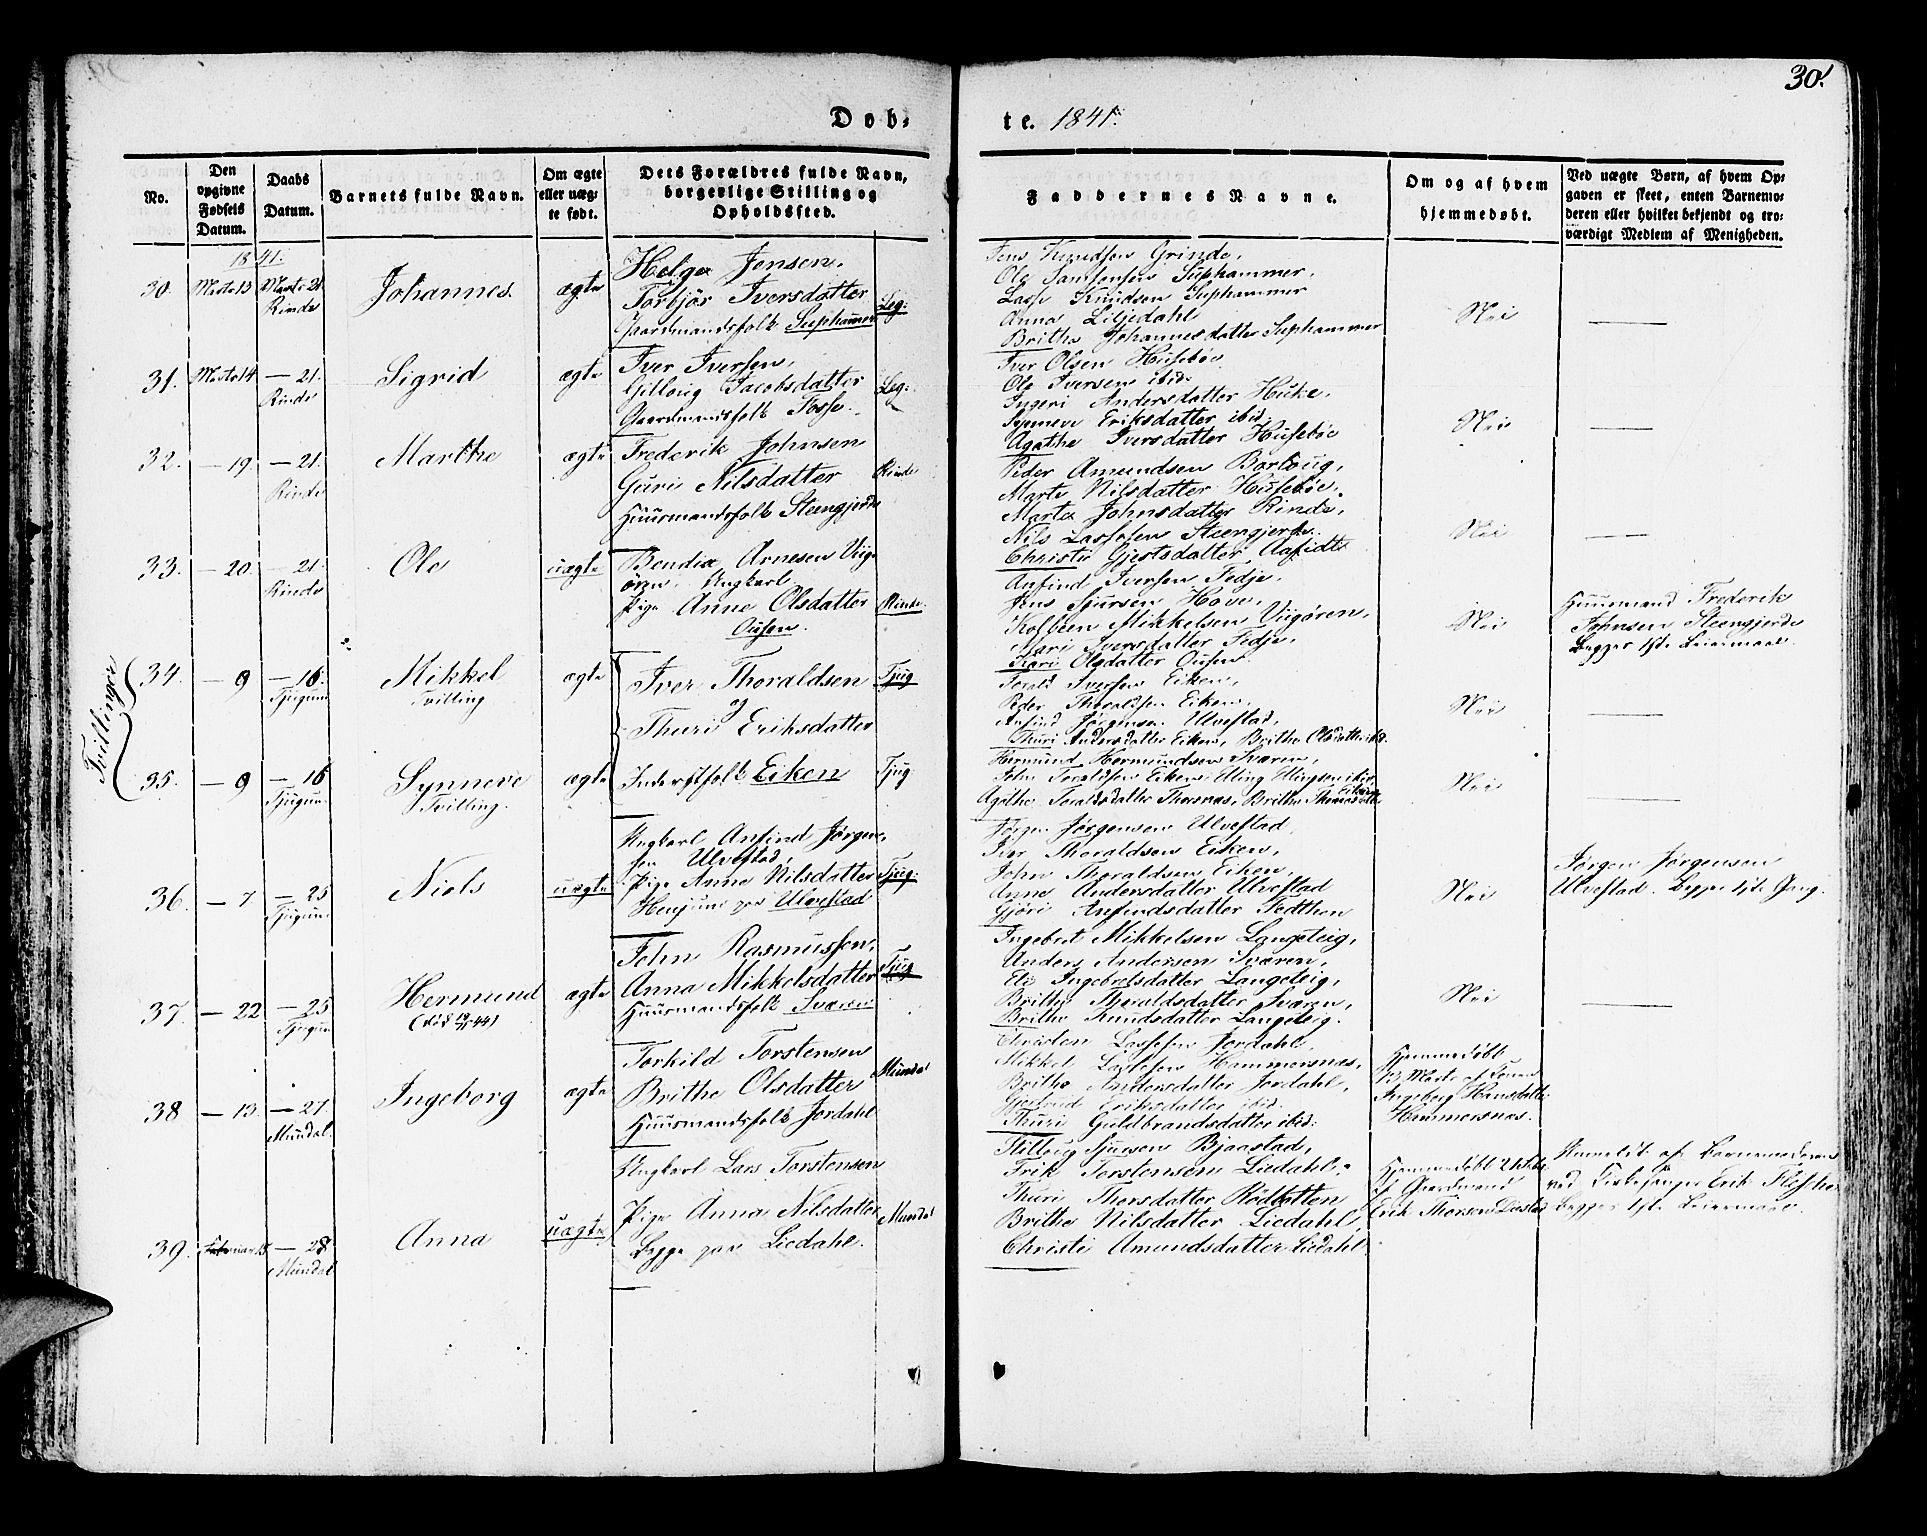 30.
Døb-
te. 1841.
No.
Den opgivne Fødsels Datum.
Daabs Datum.
Barnets fulde Navn.
Om ægte eller uæg-
te født.
Dets Forældres fulde Navn,
borgerlige Stilling og
Opholdssted.
Faddernes Navne.
Om og af hvem
hjemmedøbt.
Ved uægte Børn, af hvem Op-
gaven er skeet, enten Barnemo-
deren eller hvilket bekjendt og tro-
værdigt Medlem af Menigheden.
1841.
30. Marts 13 Marts 21 Rinde Johannes. ægte
Helge Jensen,
Torbjør Iversdatter
Gaardmandsfolk Suphammer Leg:
Jens Knudsen Grinde,
Ole Samsonsen Suphammer,
Lasse Knudsen Suphammer
Anna Liljedahl
Brithe Johannesdatter Suphammer
Nei
31. Marts 14 — 21. Rinde Sigrid ægte
Iver Iversen,
Gilloug Jacobsdatter
Gaardmandsfolk Fosse. Leg:
Iver Olsen Husebøe
Ole Iversen ibid.
Ingeri Andersdatter Huke,
Synneve Eriksdatter ibid.
Agathe Iversdatter Husebøe
Nei
32. — 19. — 21. Rinde Marthe ægte
Frederik Johnsen
Guri Nilsdatter
Huusmandsfolk Steengjerde Rinde
Peder Amundsen Borloug,
Marte Nilsdatter Husebøe,
Marta Johnsdatter Rinde,
Nils Lassesen Steengjerde
Christi Gjertsdatter
Nei
33. — 20. — 21. Rinde Ole uægte
Bendix Arnesen Viig-
øren, Ungkarl
Pige Anne Olsdatter
Ousen. Rinde.
Anfind Iversen Fedje,
Jens Sjursen Hove,
Kolbeen Mikkelsen Viigøren,
Mari Iversdatter Fedje,
Kari Olsdatter Ousen.
Nei
Huusmand Frederik
Johnsen Steengjerde
Begges 1ste Leiermaal.
Tvillinger
34. — 9 — 16. Tjugum Mikkel
Tvilling
ægte
Iver Thoraldsen Tjug
og
Thuri Eriksdatter
Torald Iversen Eiken,
Peder Thoraldsen Eiken,
Anfind Jørgensen Ulvestad,
Thuri Andersdatter Eiken, Brithe Olsdatter ibid.
Nei
35. — 9 — 16 Tjugum Synneve
Tvilling.
ægte
Inderstfolk Eiken Tjug.
Hermund Hermundsen Sværen,
John Toraldsen Eiken, Elling Ellingsen ibid.
Agathe Toraldsdatter Thorsnæs, Brithe Thomasdatter
Eiken
Nei
36. — 7 — 25 Tjugum Niels uægte
Ungkarl Anfind Jørgen-
sen Ulvestad,
Pige Anne Nilsdatter
Henjum paa Ulvestad Tjug:
Jørgen Jørgensen Ulvestad,
Iver Thoraldsen Eiken,
John Thoraldsen Eiken
Anne Andersdatter Ulvestad
Gjøri Anfindsdatter
Nei
Jørgen Jørgensen
Ulvestad. Begges 1ste Gang.
37. — 22 — 25 Tjugum Hermund
(død 19/11 44)
ægte
John Rasmussen,
Anna Mikkelsdatter
Huusmandsfolk Sværen Tjug
Ingebret Mikkelsen Langeteig,
Anders Andersen Sværen,
Eli Ingebretsdatter Langeteig,
Brithe Thoraldsdatter Sværen,
Brithe Knudsdatter Langeteig.
Nei
38 — 13. — 27. Mundal. Ingeborg ægte
Torkild Torstensen
Brithe Olsdatter
Huusmandsfolk Jordahl Mundal
Christen Lassesen Jordahl,
Mikkel Lassesen Hammersnæs,
Brithe Andersdatter Jordahl,
Gjertrud Eriksdatter ibid.
Thuri Guldbrandsdatter ibid.
Hjemmedøbt
13 Marts af Konen
Ingeborg Hansdatter
Hammersnæs.
39. Februar 15 — 28 Mundal Anna uægte
Ungkarl Lars Torstensen
Pige Anna Nilsdatter
Begge paa Liedahl. Mundal
Sjursen Bjaastad,
Erik Torstensen Liedahl,
Thuri Thorsdatter
Brithe Nilsdatter Liedahl,
Christi Amundsdatter Liedahl.
Hjemmedøbt
af Gaardmand
Erik Thorsen
Anmeldt af Barnemoderen
ved Kirkesanger Erik
Begges 1ste Leiermaal.